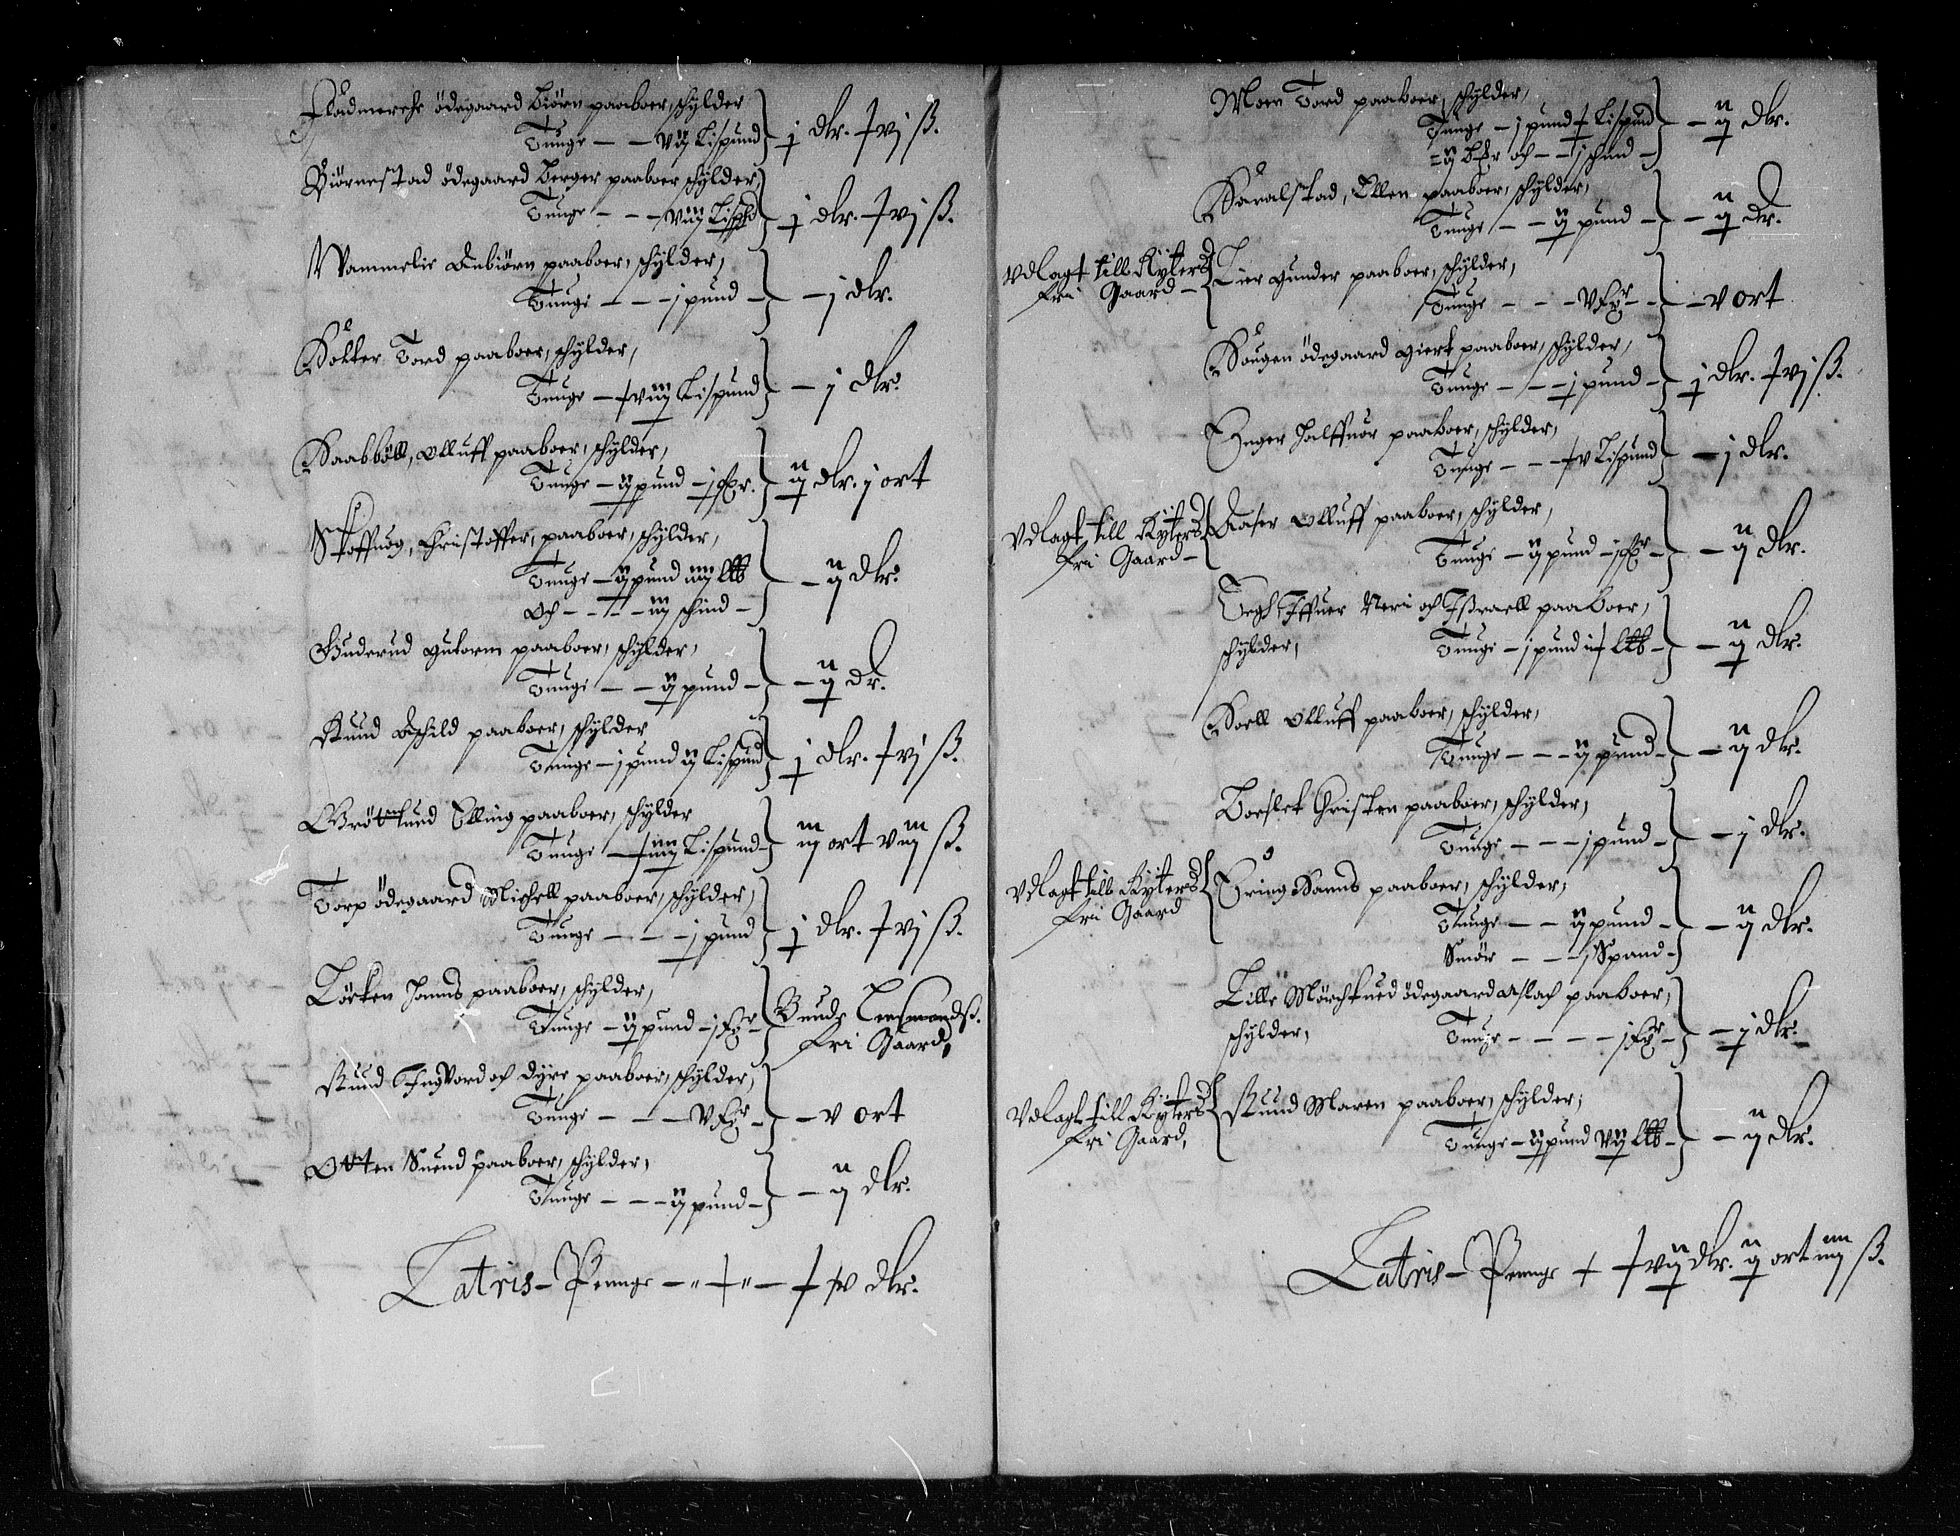 ödegaard Biörn paaboer, schylder
Tunge — — vij Lispund j dlr. xvj ß.
Biörnestad ödegaard Berger paaboer schylder,
Tunge — — viij Lispd j dlr. xvj ß.
Wammelie Anbiörn paaboer, schylder,
Tunge — — — j pund — — j dlr.
Tord paaboer, schylder,
Tunge — xviij Lispund — j dlr.
Olluff paaboer, schylder,
Tunge — ij pund — j fr. ij dlr. j ort
Christoffer, paaboer, schylder,
Tunge — ij pund iiij
Och — — — iij schind — — ij dlr.
Guderud gutorm paaboer, schylder,
Tunge — — ij pund — — ij dr.
Rund Eschild paaboer, schylder
Tunge — j pund ij Lispund j dlr. xvj ß.
Elling paaboer, schylder
Tunge Lispund iij ort viij ß.
Torp ödegaard Michell paaboer, schylder,
Tunge — — — j pund j dlr. xvj ß.
Lörken Hanns paaboer, schylder,
Tunge — ij pund — j fr Bunde Lensmandß.
Fri Gaard,
Rund Ingvord och dyre paaboer, schylder,
Tunge — — — v fr — — v ort
Otten Suend paaboer, schylder,
Tunge — — — ij pund — — ij dlr.
Latris — Penge — xv dlr.
Moen Tord paaboer, schylder,
Tunge — j pund x Lispund — ij dlr.
och — — j schind —
Haralstad, Ellen paaboer, schylder,
Tunge — — ij pund — — ij dr.
Vdlagt till Rÿters
Fri Gaard —
Lier gunder paaboer, schylder,
Tunge — — — v fr — — v ort
Hougen ödegaard giert paaboer, schylder,
Tunge — — — j pund — j dlr. xvj ß.
Enger Halffuor paaboer, schylder,
Tunge — — xv Lispund — j dlr.
Vdlagt till Rÿters
Fri Gaard —
Aaser Olluff paaboer, schylder,
Tunge — ij pund — j fr — — ij dlr.
Iffuer Neri och Ißraell paaboer,
schylder, Tunge — j pund — ij dlr.
Olluff paaboer, schylder,
Tunge — — — ij pund — — ij dlr.
Christen paaboer, schylder,
Tunge — — — j pund — — j dlr.
Vdlagt till Rÿters
Fri Gaard
Hanns paaboer, schylder,
Tunge — — ij pund —
Smör — — j Spand — — ij dlr.
Lille ödegaard Aslach paaboer,
schylder, Tunge — — — — j fr — — j dlr.
Vdlagt till Rÿters
Fri Gaard,
Rund Maren paaboer, schylder,
Tunge — ij pund vij — ij dlr.
Latris — Penge xvij dlr. ij ort iiij ß.